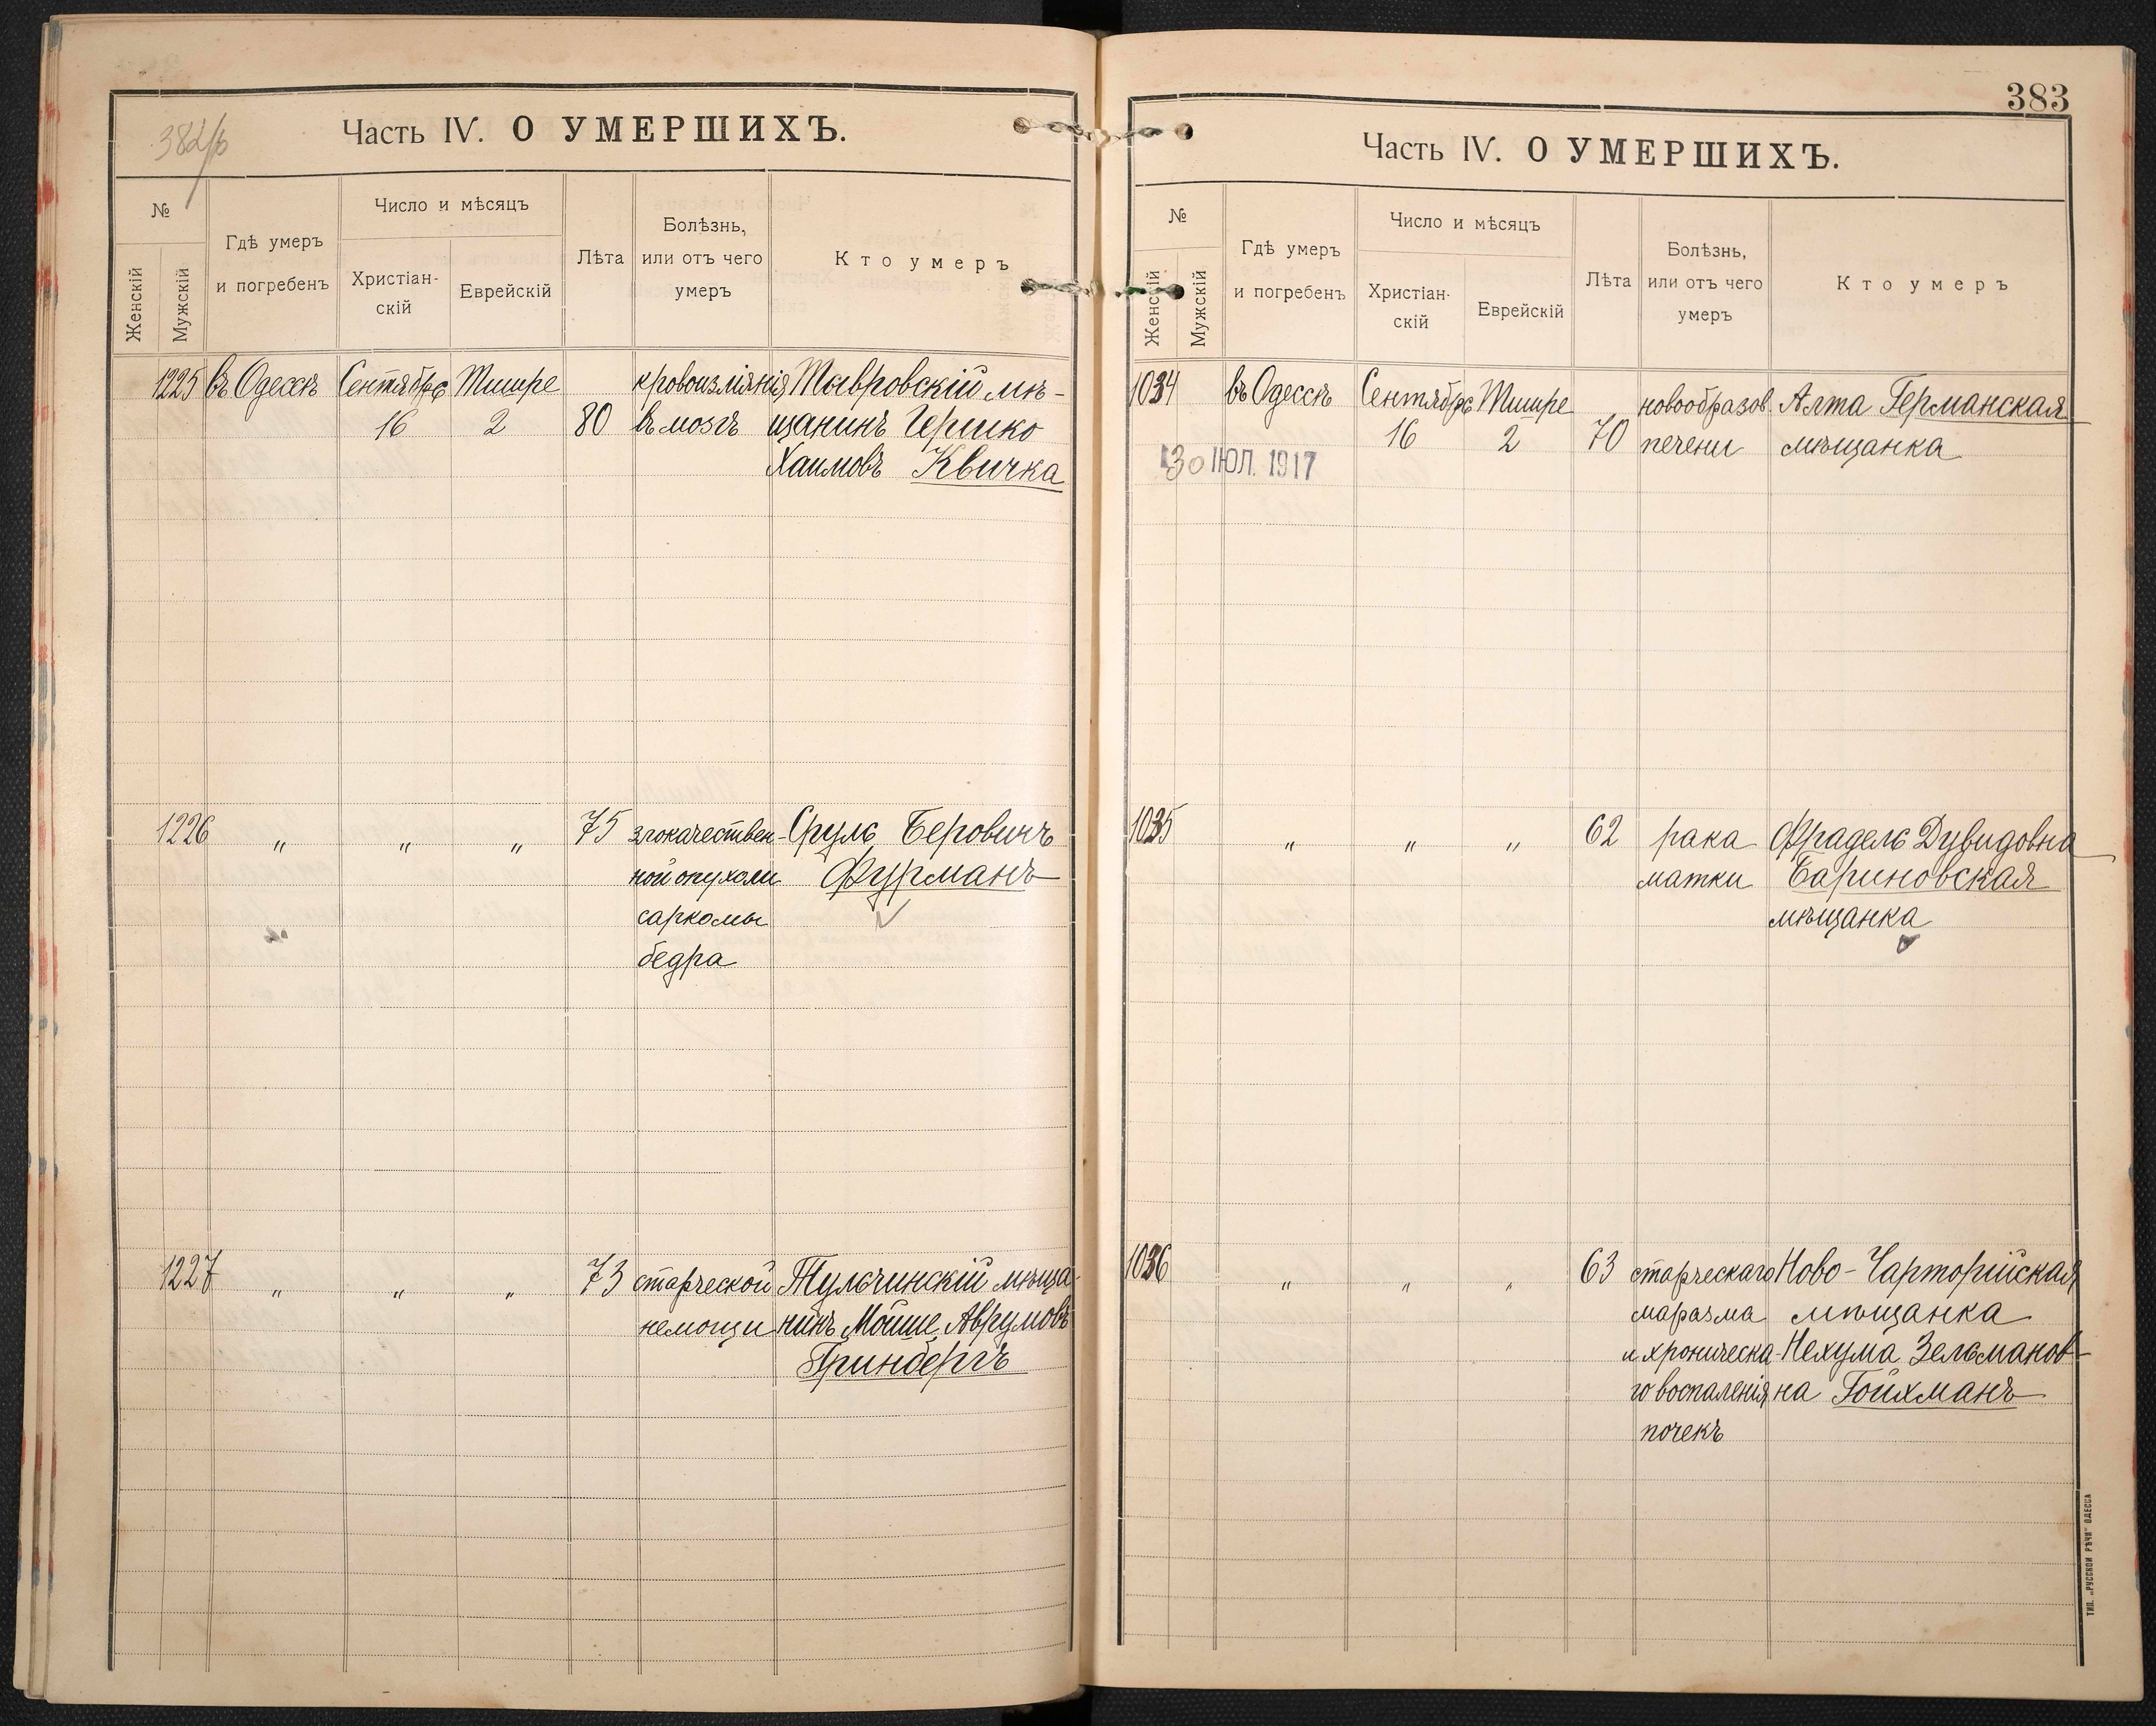 382/b
Часть IV. О УМЕРШИХЪ.
№
Женскій
Мужскій
Гдѣ умеръ
и погребенъ
Число и мѣсяцъ
Христіан-
скій
Еврейскій
Лѣта
Болѣзнь,
или отъ чего
умеръ
Кто умеръ
1225 въ Одессѣ Сентябрь Тишре кровоизліянія Тавровскій мѣ-
16 2 80 въ мозгъ щанинъ Гершко
Хаимовъ Квичка
1226 „ „ „ 75 злокачествен- Сруль Беровичъ
ной опухоли Фурманъ
саркомы
бедра
1227 „ „ „ 73 старческой Тульчинскій мѣща-
немощи нинъ Мойше Аврумовъ
Гринбергъ
383
Часть IV. О УМЕРШИХЪ.
№
Женскій
Мужскій
Гдѣ умеръ
и погребенъ
Число и мѣсяцъ
Христіан-
скій
Еврейскій
Лѣта
Болѣзнь,
или отъ чего
умеръ
Кто умеръ
1034 въ Одессѣ Сентябрь Тишре новообразов. Алта Германская
16 2 70 печени мѣщанка
30 ІЮЛ. 1917
1035 „ „ „ 62 рака Фрадель Дувидовна
матки Бариновская
мѣщанка
1036 „ „ „ 63 старческаго Ново-Чарторійская
маразма мѣщанка
и хроническа- Нехума Зельманов-
го воспаленія на Гойхманъ
почекъ
ТИП. „РУССКОЙ РѢЧИ" ОДЕССА